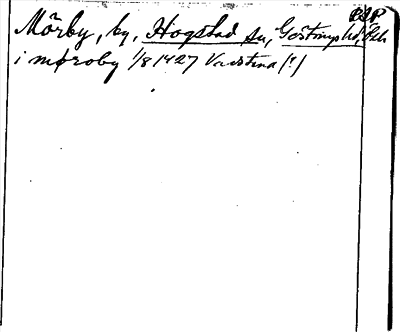 Mörby, by, Hogstad sn, Göstrings hd, Ög
i møroby 1/8 1427 Vadstena (?)